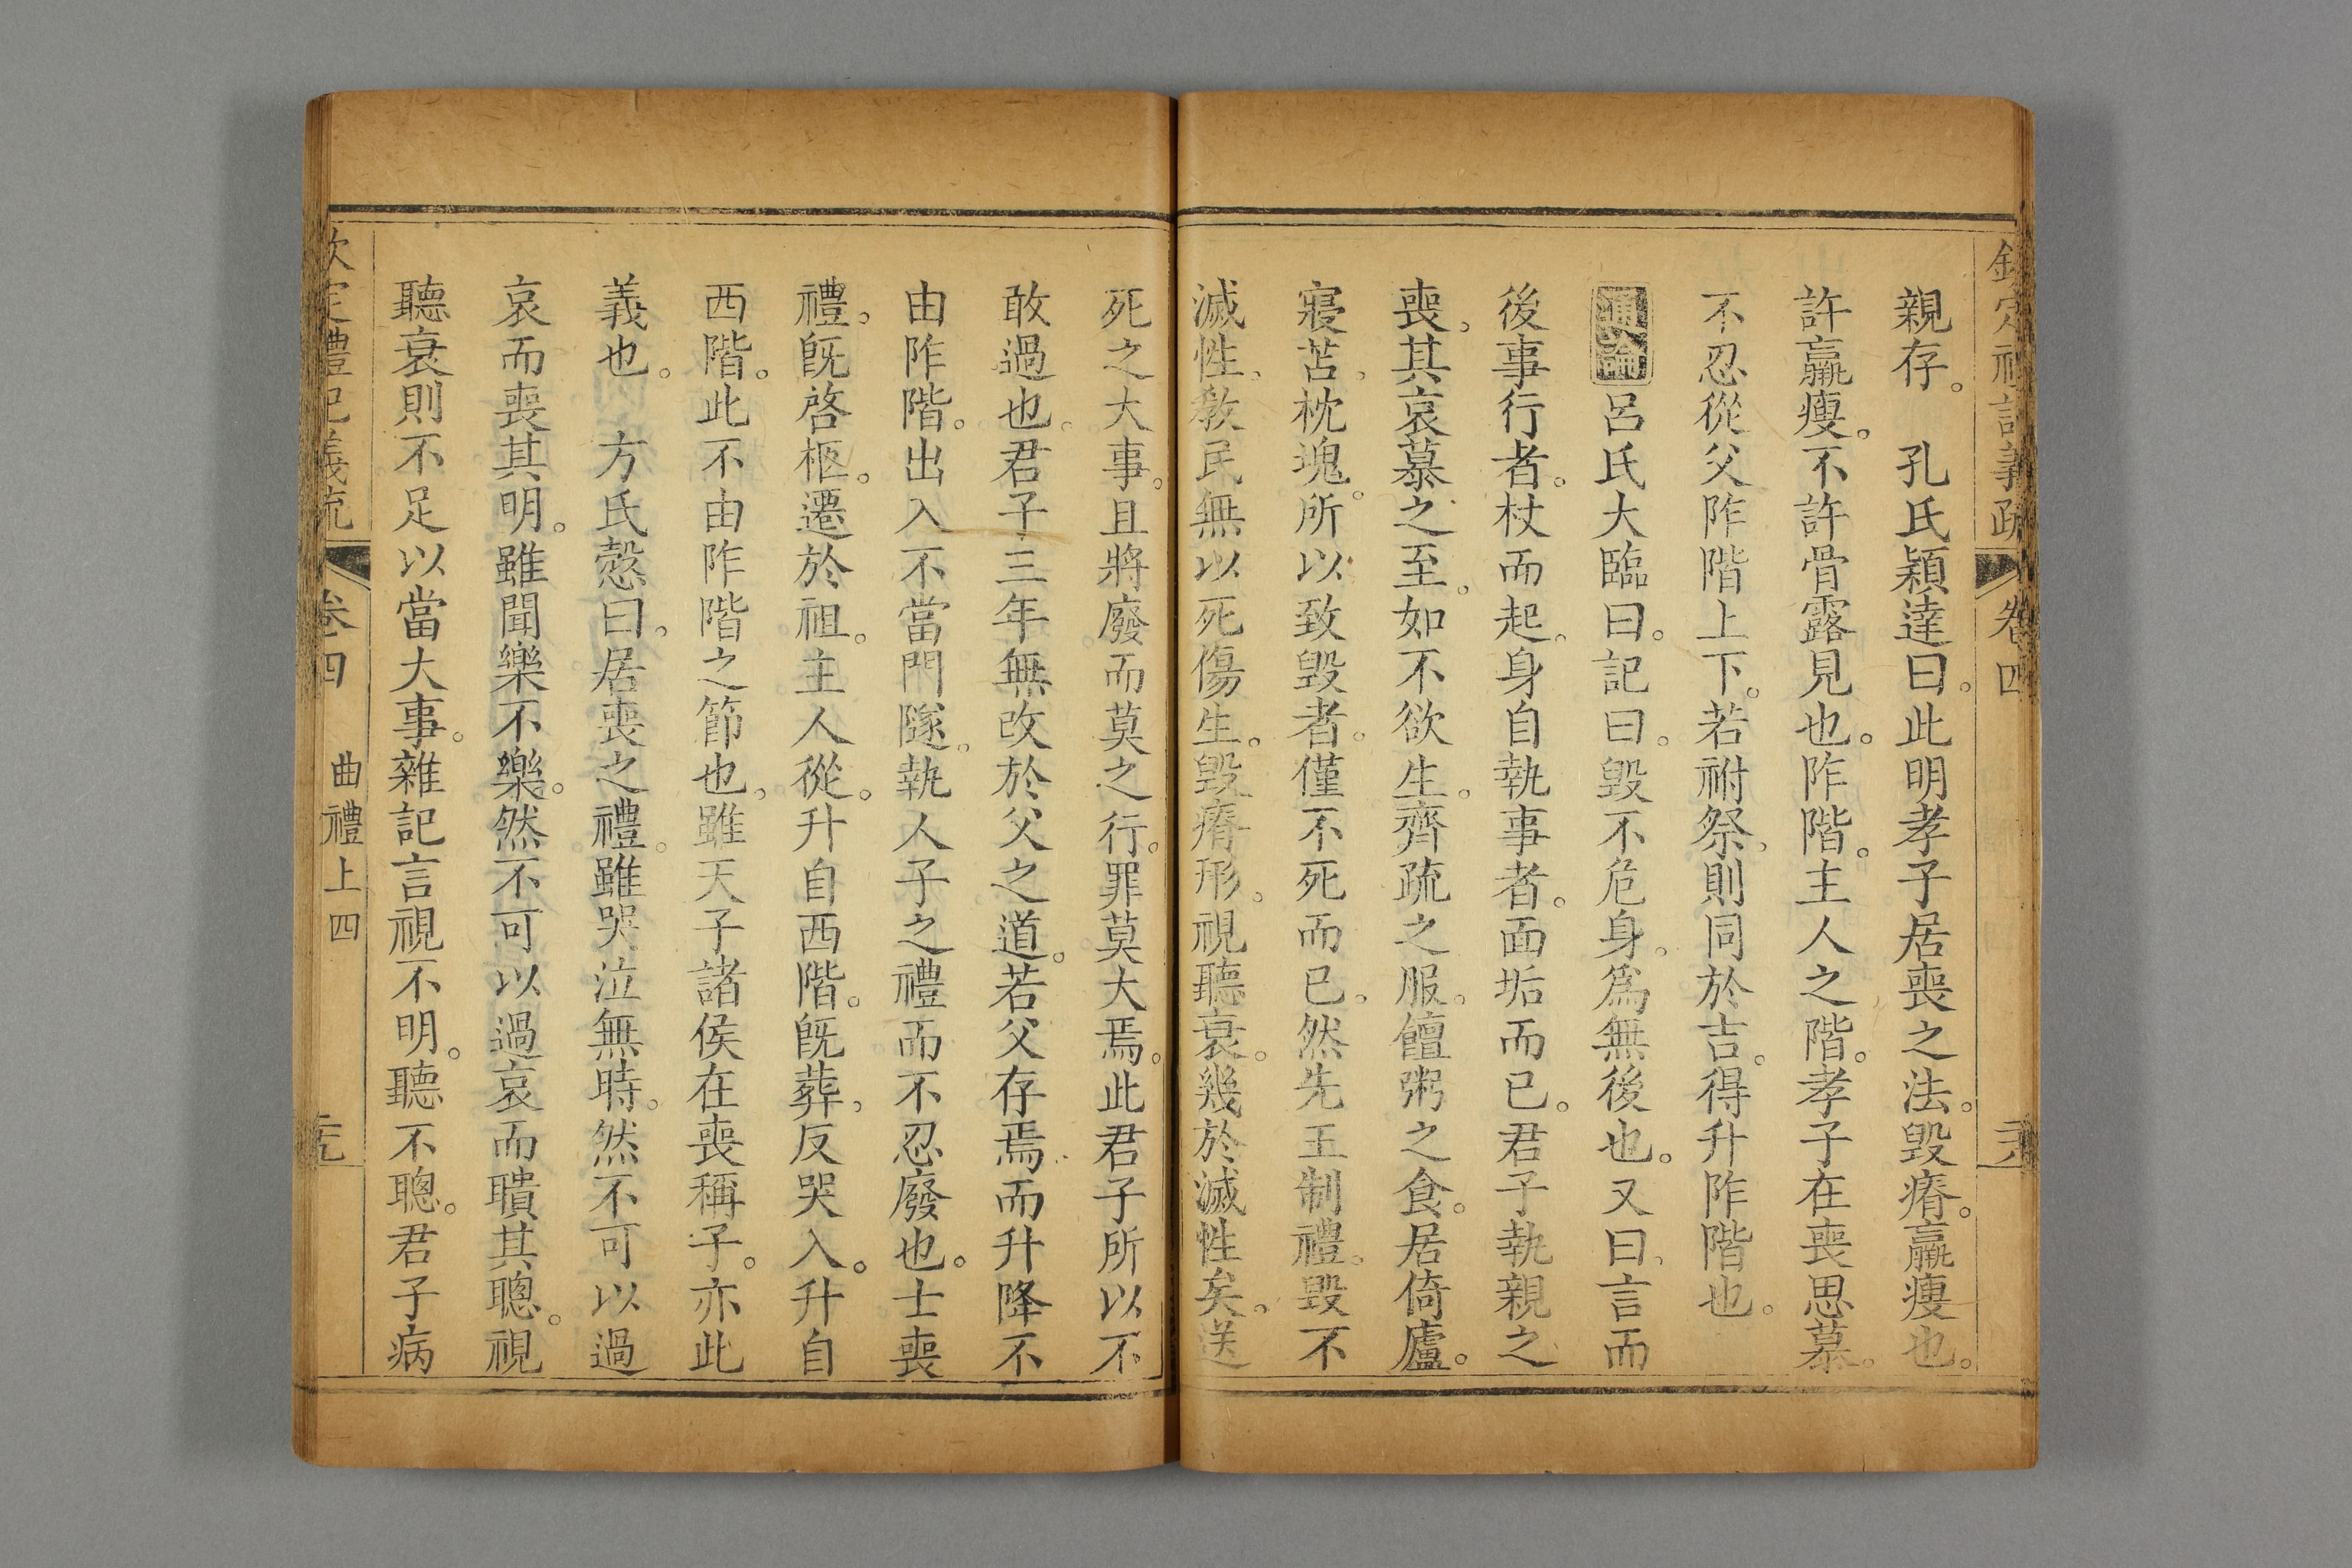 欽定禮記義疏 卷四
親存。 孔氏穎達曰。此明孝子居喪之法。毀瘠。羸瘦也。
許羸瘦。不許骨露見也。阼階。主人之階。孝子在喪思慕。
不忍從父阼階上下。若祔祭、則同於吉。得升阼階也。
通論 呂氏大臨曰。記曰。毀不危身。爲無後也。又曰、言而
後事行者。杖而起。身自執事者。面垢而已。君子執親之
喪。其哀慕之至。如不欲生。齊疏之服。饘粥之食。居倚廬。
寢苫、枕塊。所以致毀者。僅不死而已。然先王制禮。毀不
滅性、教民無以死傷生。毀瘠形。視聽衰。幾於滅性矣。送
死之大事。且將廢而莫之行。罪莫大焉。此君子所以不
敢過也。君子三年無改於父之道。若父存焉。而升降不
由阼階。出入不當門隧。執人子之禮而不忍廢也。士喪
禮。既啓柩。遷於祖。主人從。升自西階。既葬、反哭入。升自
西階。此不由阼階之節也、雖天子諸侯在喪稱子。亦此
義也。 方氏慤曰。居喪之禮。雖哭泣無時。然不可以過
哀而喪其明。雖聞樂不樂。然不可以過哀而聵其聰。視
聽衰則不足以當大事。雜記言視不明。聽不聰。君子病
欽定禮記義疏 卷四 曲禮上四